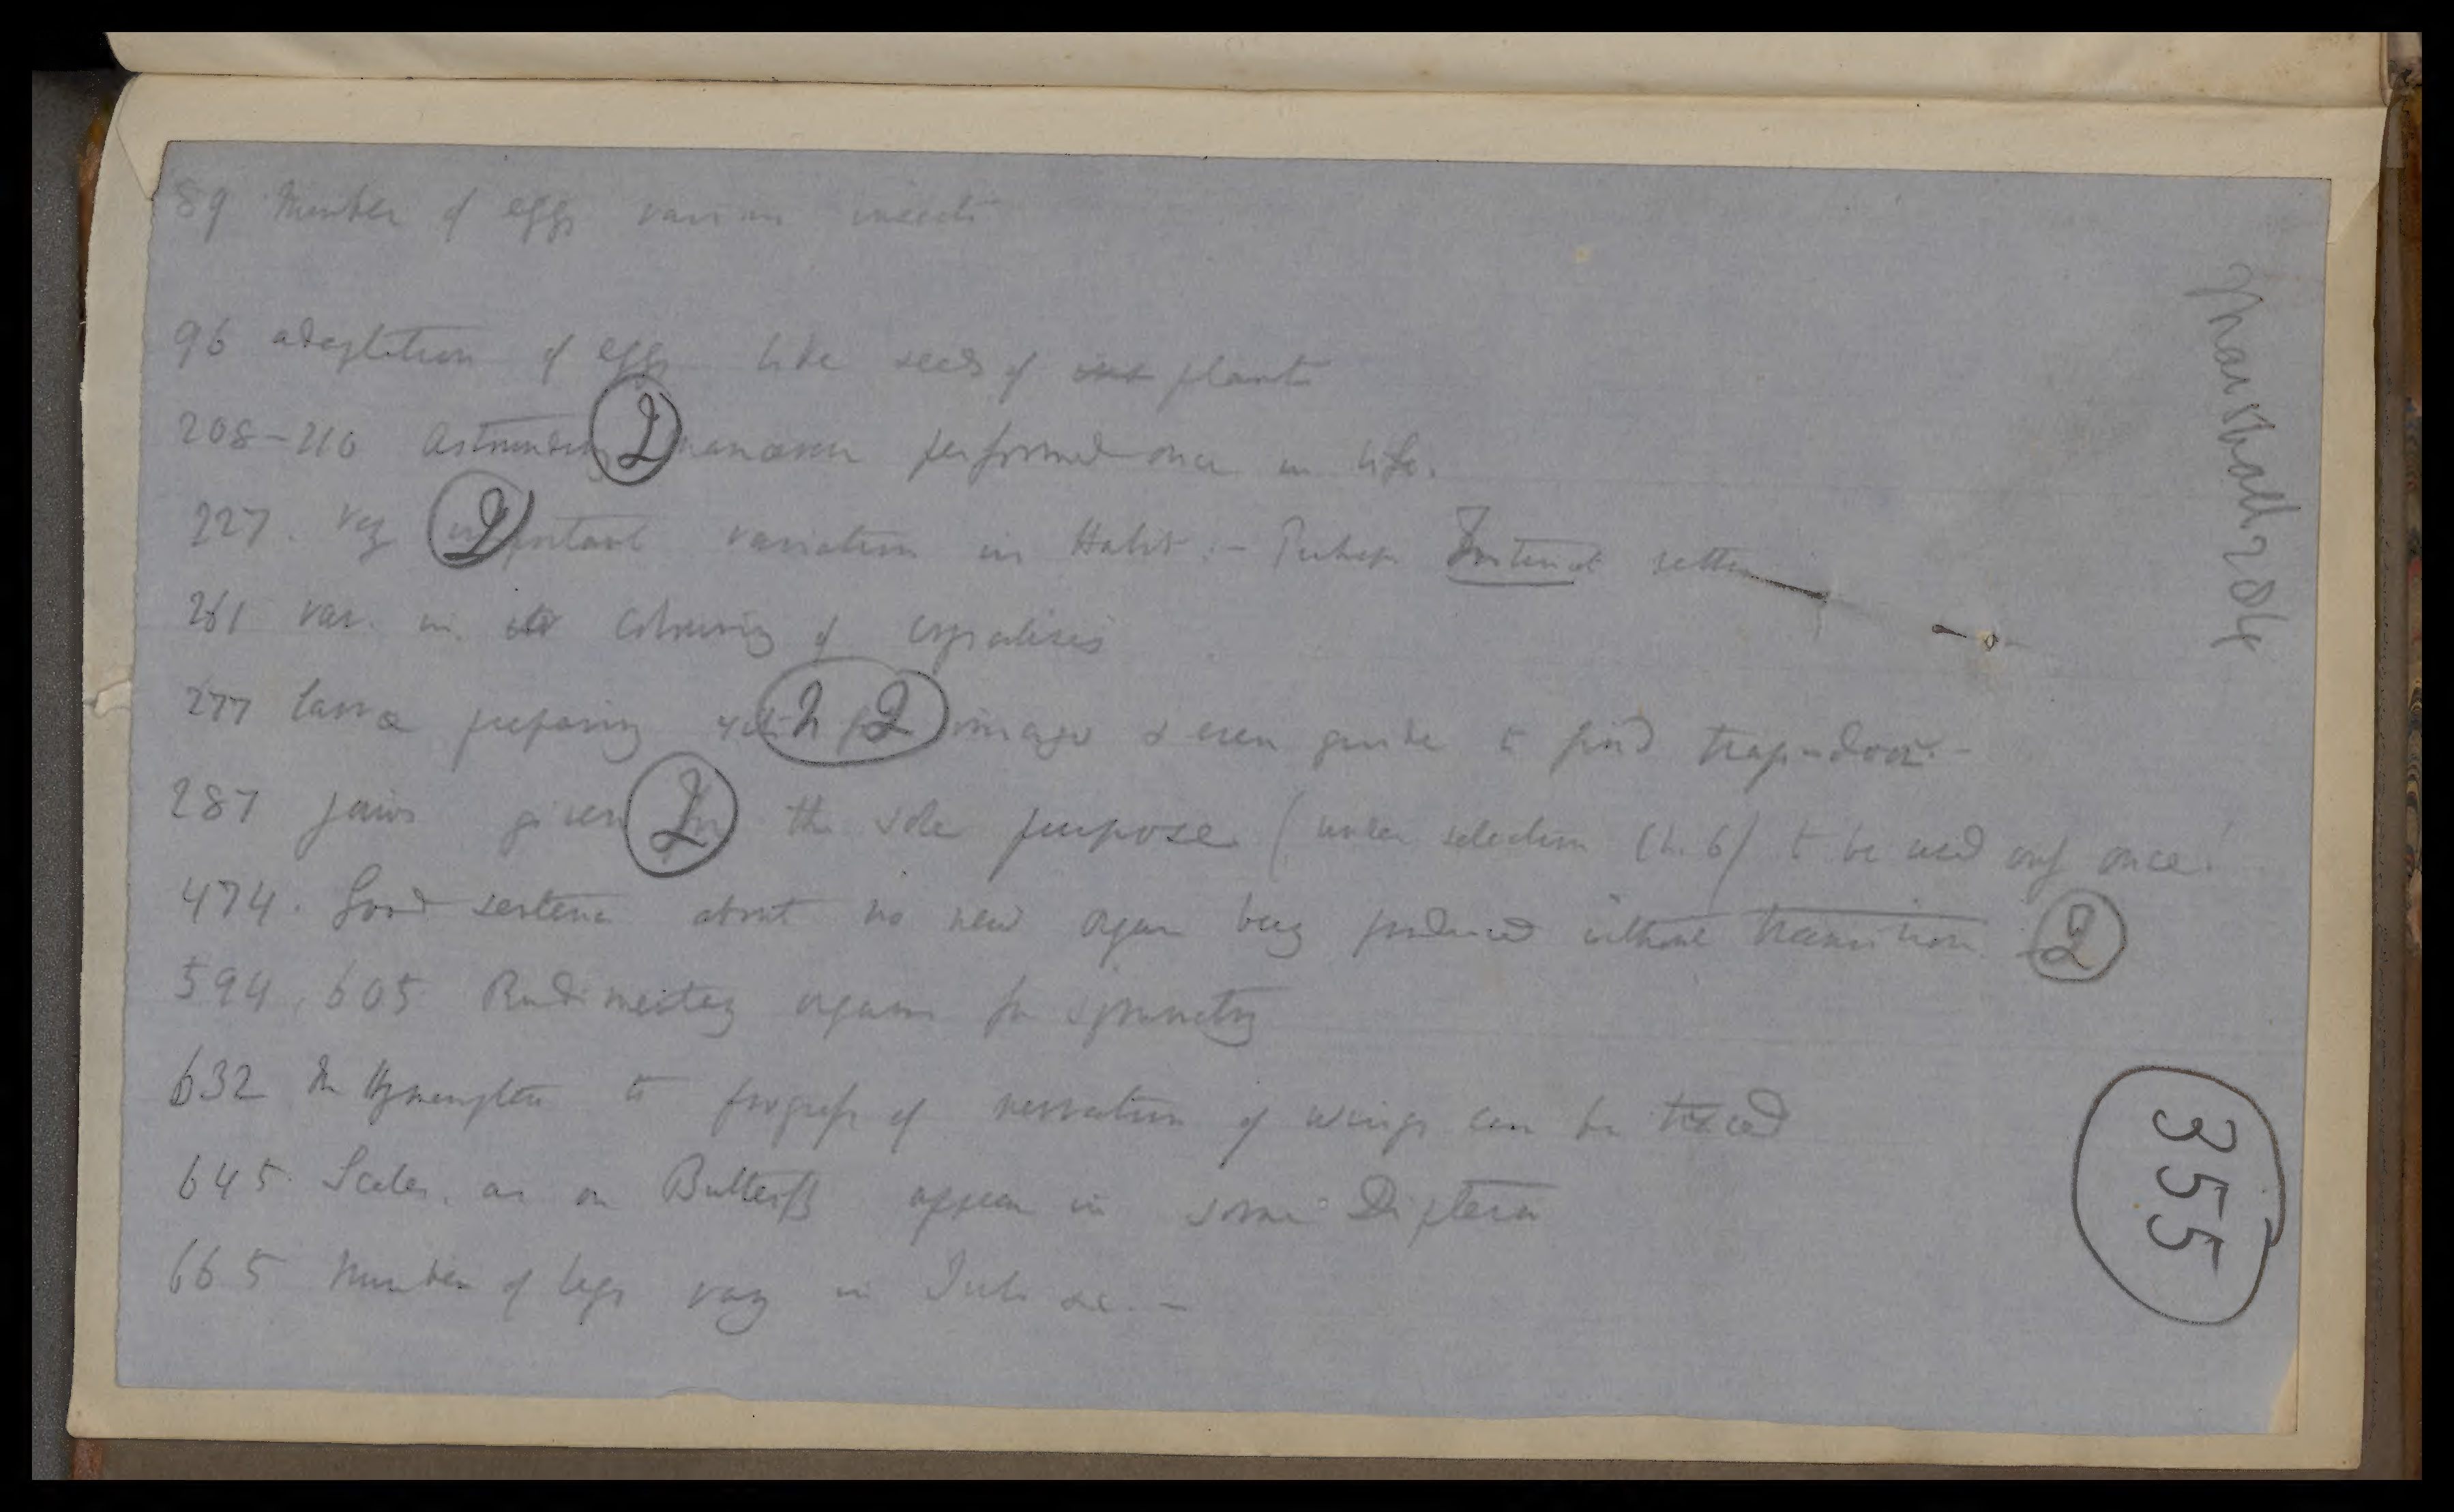 89 Number of eggs various insects
96 adaptation of eggs like seeds of plants
208–210 Astounding manœuvre performed once in life.
227. Very important variation in Habit.— Perhaps Instinct better
261 var. in colouring of crysalises
277 Larvæ preparing exit for imago & even guide to find trap-door.—
287 Jaws given for the sole purpose (under selection Ch. 6) to be used only once!
474. Good sentence about no new organ being produced without transition 2
594, 605 Rudimentary organs for symmetry
632 In Hymenoptera to progress of nervation of wings can be traced
645 Scales, as on Butterfly appear in some Diptera
665 Number of legs vary in Iuli &c.—
355